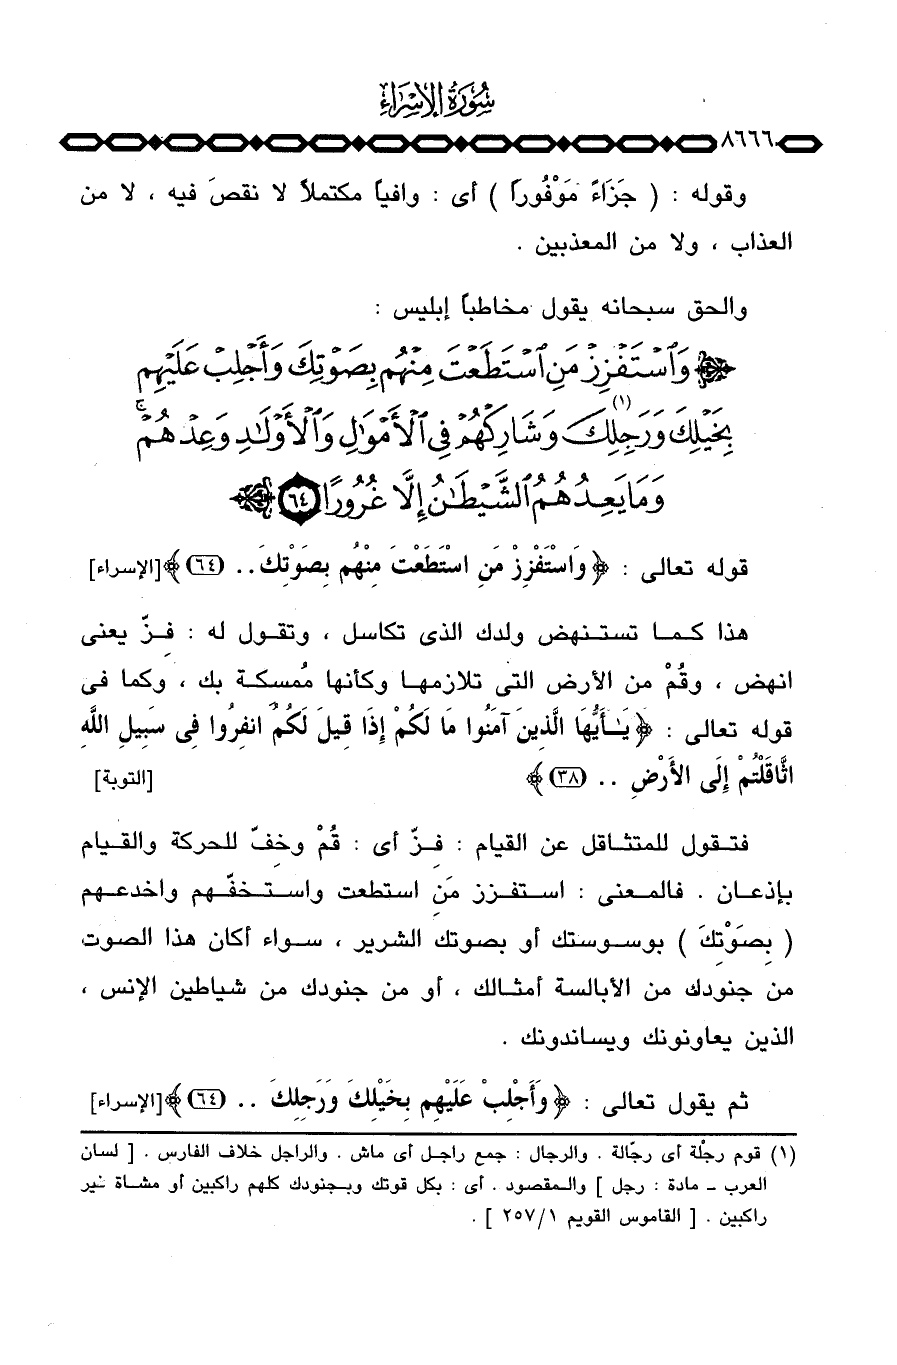 سُورَةُ الإِسْرَاءِ
٨٦٦٦
وقوله : ( جَزَاءً مَوْفُوراً ) أى : وافياً مكتملاً لا نقصَ فيه ، لا من
العذاب ، ولا من المعذبين .
والحق سبحانه يقول مخاطباً إبليس :
وَٱسْتَفْزِزْ مَنِ ٱسْتَطَعْتَ مِنْهُم بِصَوْتِكَ وَأَجْلِبْ عَلَيْهِم
بِخَيْلِكَ وَرَجِلِكَ (١) وَشَارِكْهُمْ فِى ٱلْأَمْوَٰلِ وَٱلْأَوْلَٰدِ وَعِدْهُمْ ۚ
وَمَا يَعِدُهُمُ ٱلشَّيْطَٰنُ إِلَّا غُرُورًا ٦٤
قوله تعالى : ﴿ وَاسْتَفْزِزْ مَنِ اسْتَطَعْتَ مِنْهُم بِصَوْتِكَ .. (٦٤) ﴾ [الإسراء]
هذا كما تستنهض ولدك الذى تكاسل ، وتقول له : فِزّ يعنى
انهض ، وقُمْ من الأرض التى تلازمها وكأنها مُمسكة بك ، وكما فى
قوله تعالى : ﴿ يَـٰأَيُّهَا الَّذِينَ آمَنُوا مَا لَكُمْ إِذَا قِيلَ لَكُمُ انفِرُوا فِى سَبِيلِ اللَّهِ
اثَّاقَلْتُمْ إِلَى الأَرْضِ .. (٣٨) ﴾ [التوبة]
فتقول للمتثاقل عن القيام : فِزّ أى : قُمْ وخِفّ للحركة والقيام
بإذعان . فالمعنى : استفزز مَنِ استطعت واستخفّهم واخدعهم
( بِصَوْتِكَ ) بوسوستك أو بصوتك الشرير ، سواء أكان هذا الصوت
من جنودك من الأبالسة أمثالك ، أو من جنودك من شياطين الإنس ،
الذين يعاونونك ويساندونك .
ثم يقول تعالى : ﴿ وَأَجْلِبْ عَلَيْهِم بِخَيْلِكَ وَرَجِلِكَ .. (٦٤) ﴾ [الإسراء]
(١) قوم رجْلة أى رجّالة . والرجال : جمع راجل أى ماش . والراجل خلاف الفارس . [ لسان
العرب - مادة : رجل ] والمقصود . أى : بكل قوتك وبجنودك كلهم راكبين أو مشاة غير
راكبين . [ القاموس القويم ٢٥٧/١ ] .